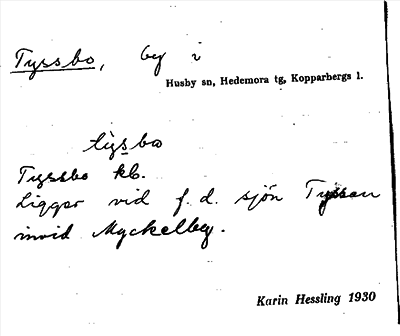 Tyssbo, by i
Husby sn, Hedemora tg, Kopparbergs l.
tysbo
Tyssbo kb.
Ligger vid f. d. sjön Tyssen
invid Myckelby.
Karin Hessling 1930